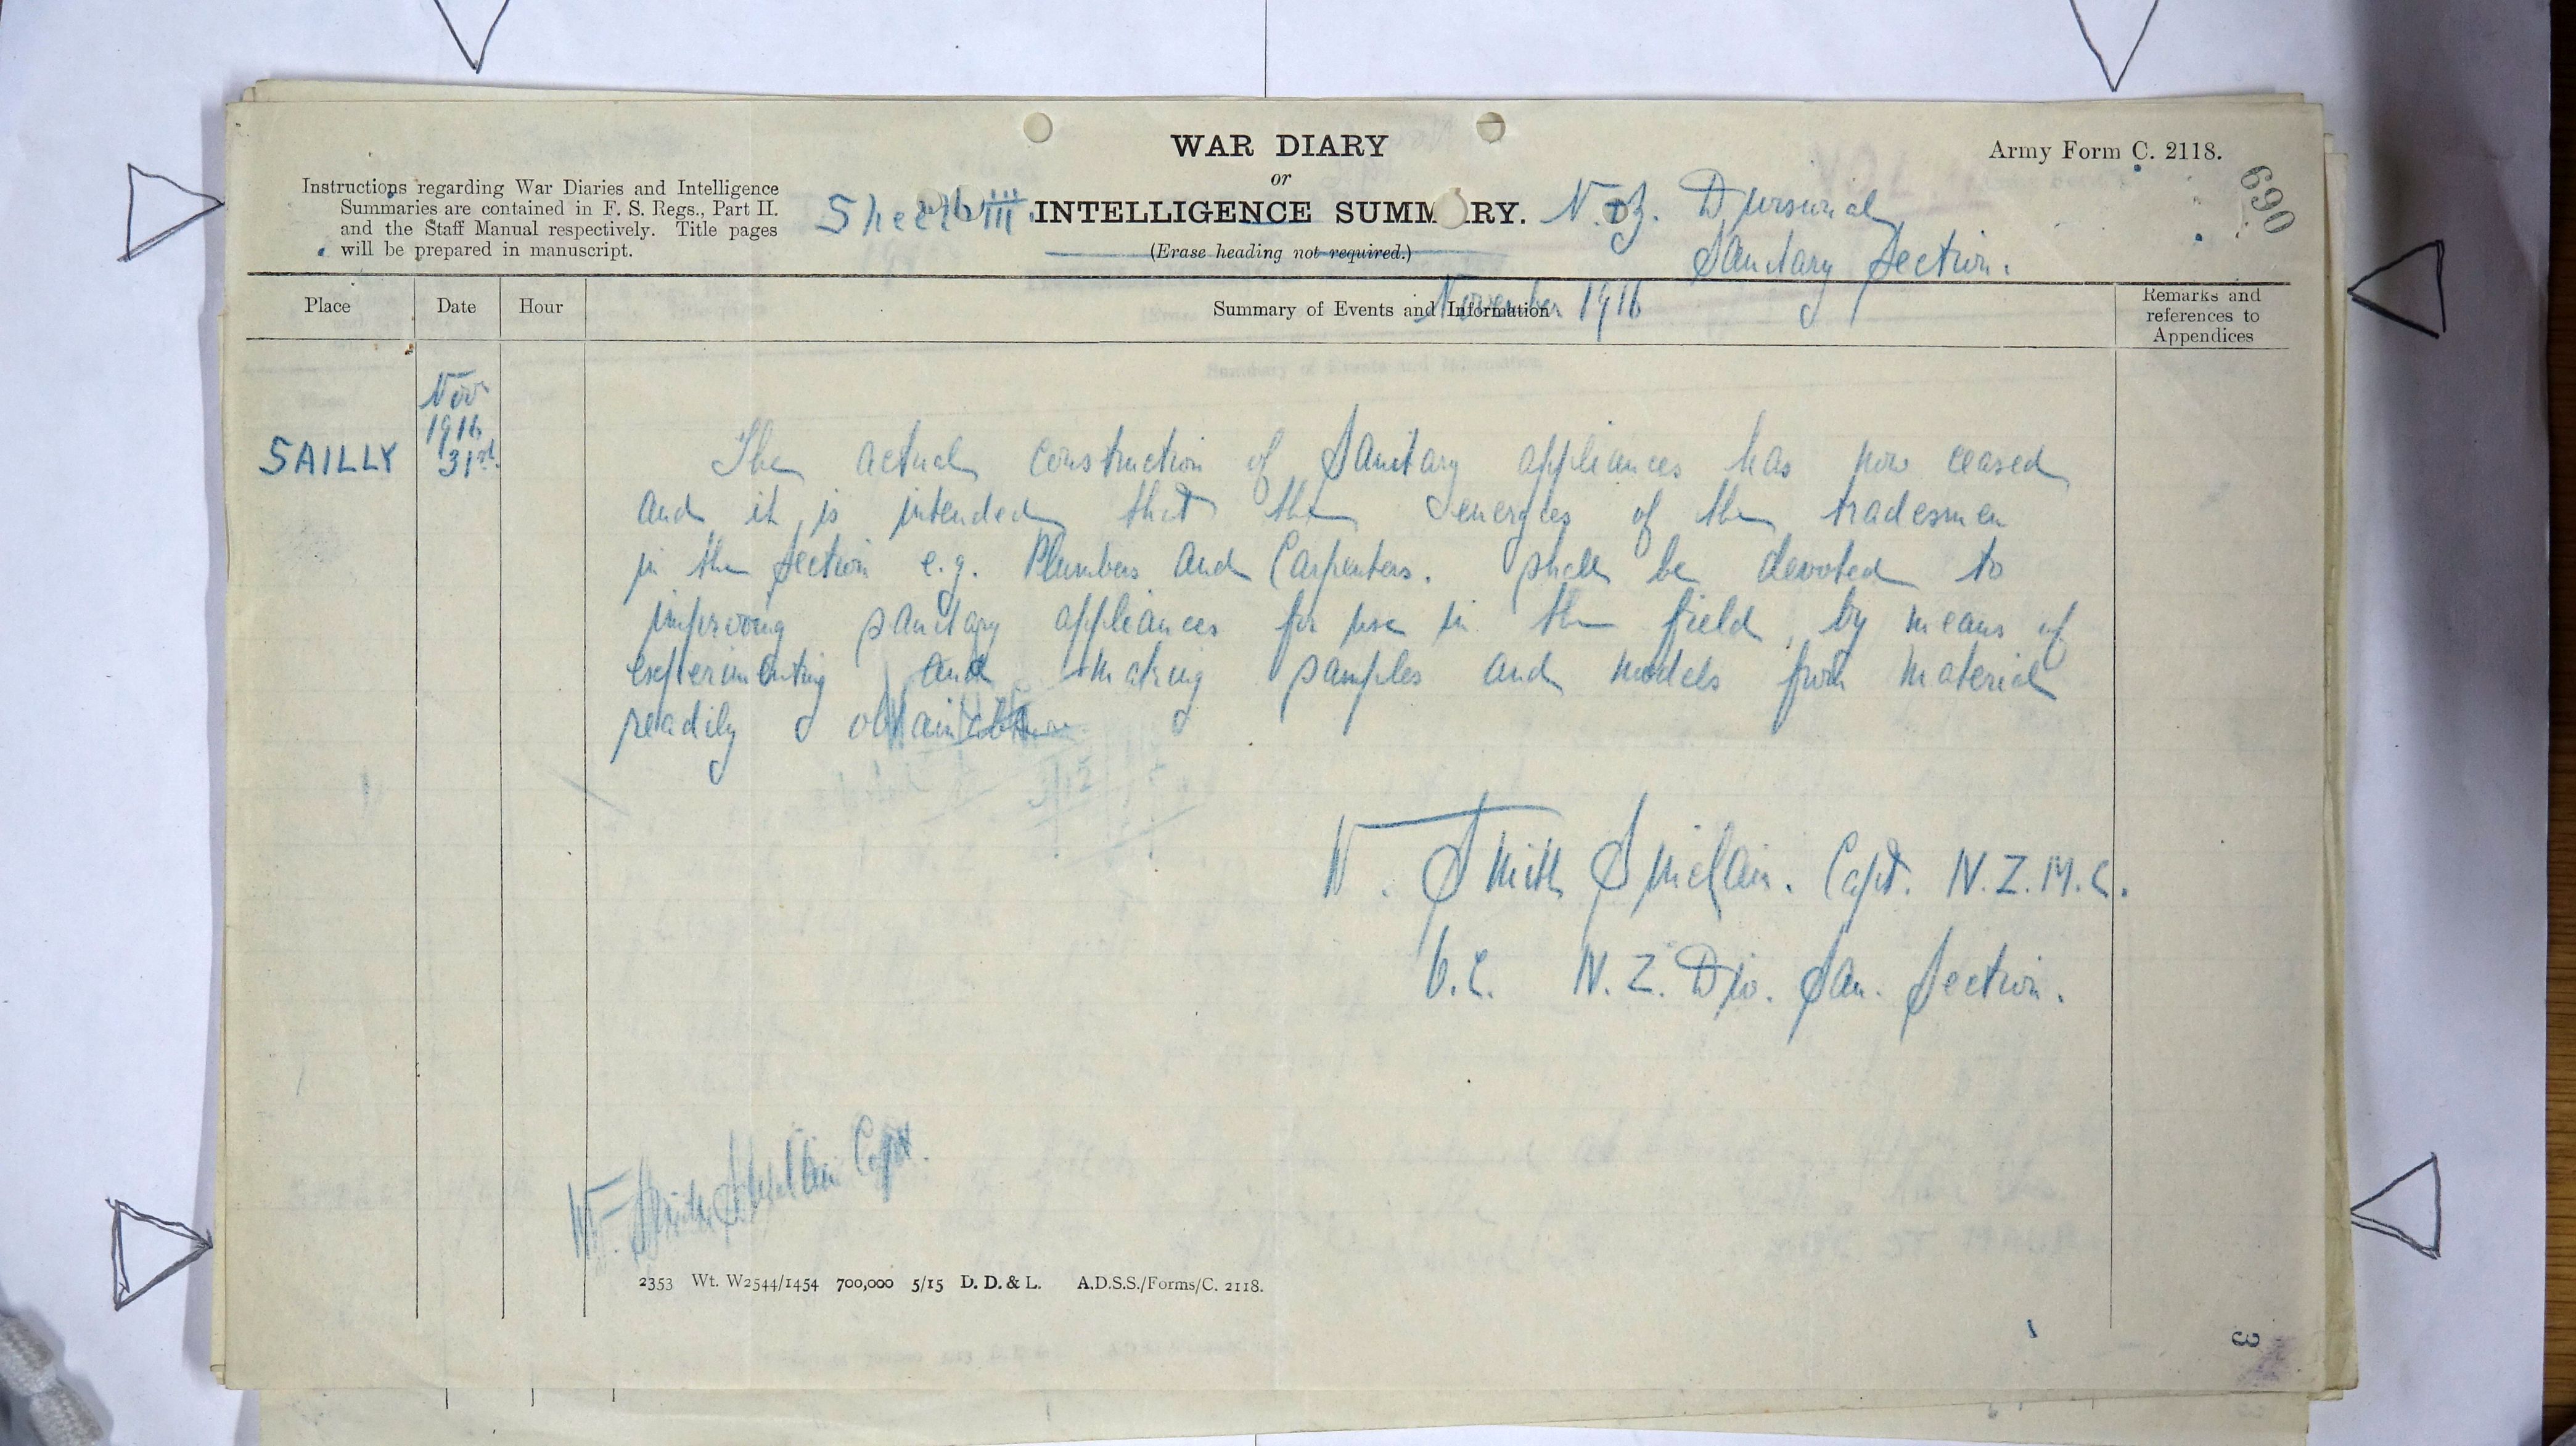 WAR DIARY
or
INTELLIGENCE SUMMARY.
(Erase heading not required.)
Army Form C. 2118.
690
Instructions regarding War Diaries and Intelligence
Summaries are contained in F. S. Regs., Part II.
and the Staff Manual respectively. Title pages
will be prepared in manuscript.
Sheet III.
N.Z. Divisional
Sanitary Section.
November 1916
Place
Date
Hour
Summary of Events and Information
Remarks and
references to
Appendices
Nov
1916
SAILLY 31st.
The actual construction of Sanitary appliances has now ceased
and it is intended that the energies of the tradesmen
in the Section e.g. Plumbers and Carpenters. shall be devoted to
improving sanitary appliances for use in the field, by means of
experimenting and making samples and models from material
readily obtainable
Smith Capt. N.Z.M.C.
O.C. N.Z. Div. San. Section.
Smith Capt.
2353 Wt. W2544/1454 700,000 5/15 D. D. & L. A.D.S.S./Forms/C. 2118.
3